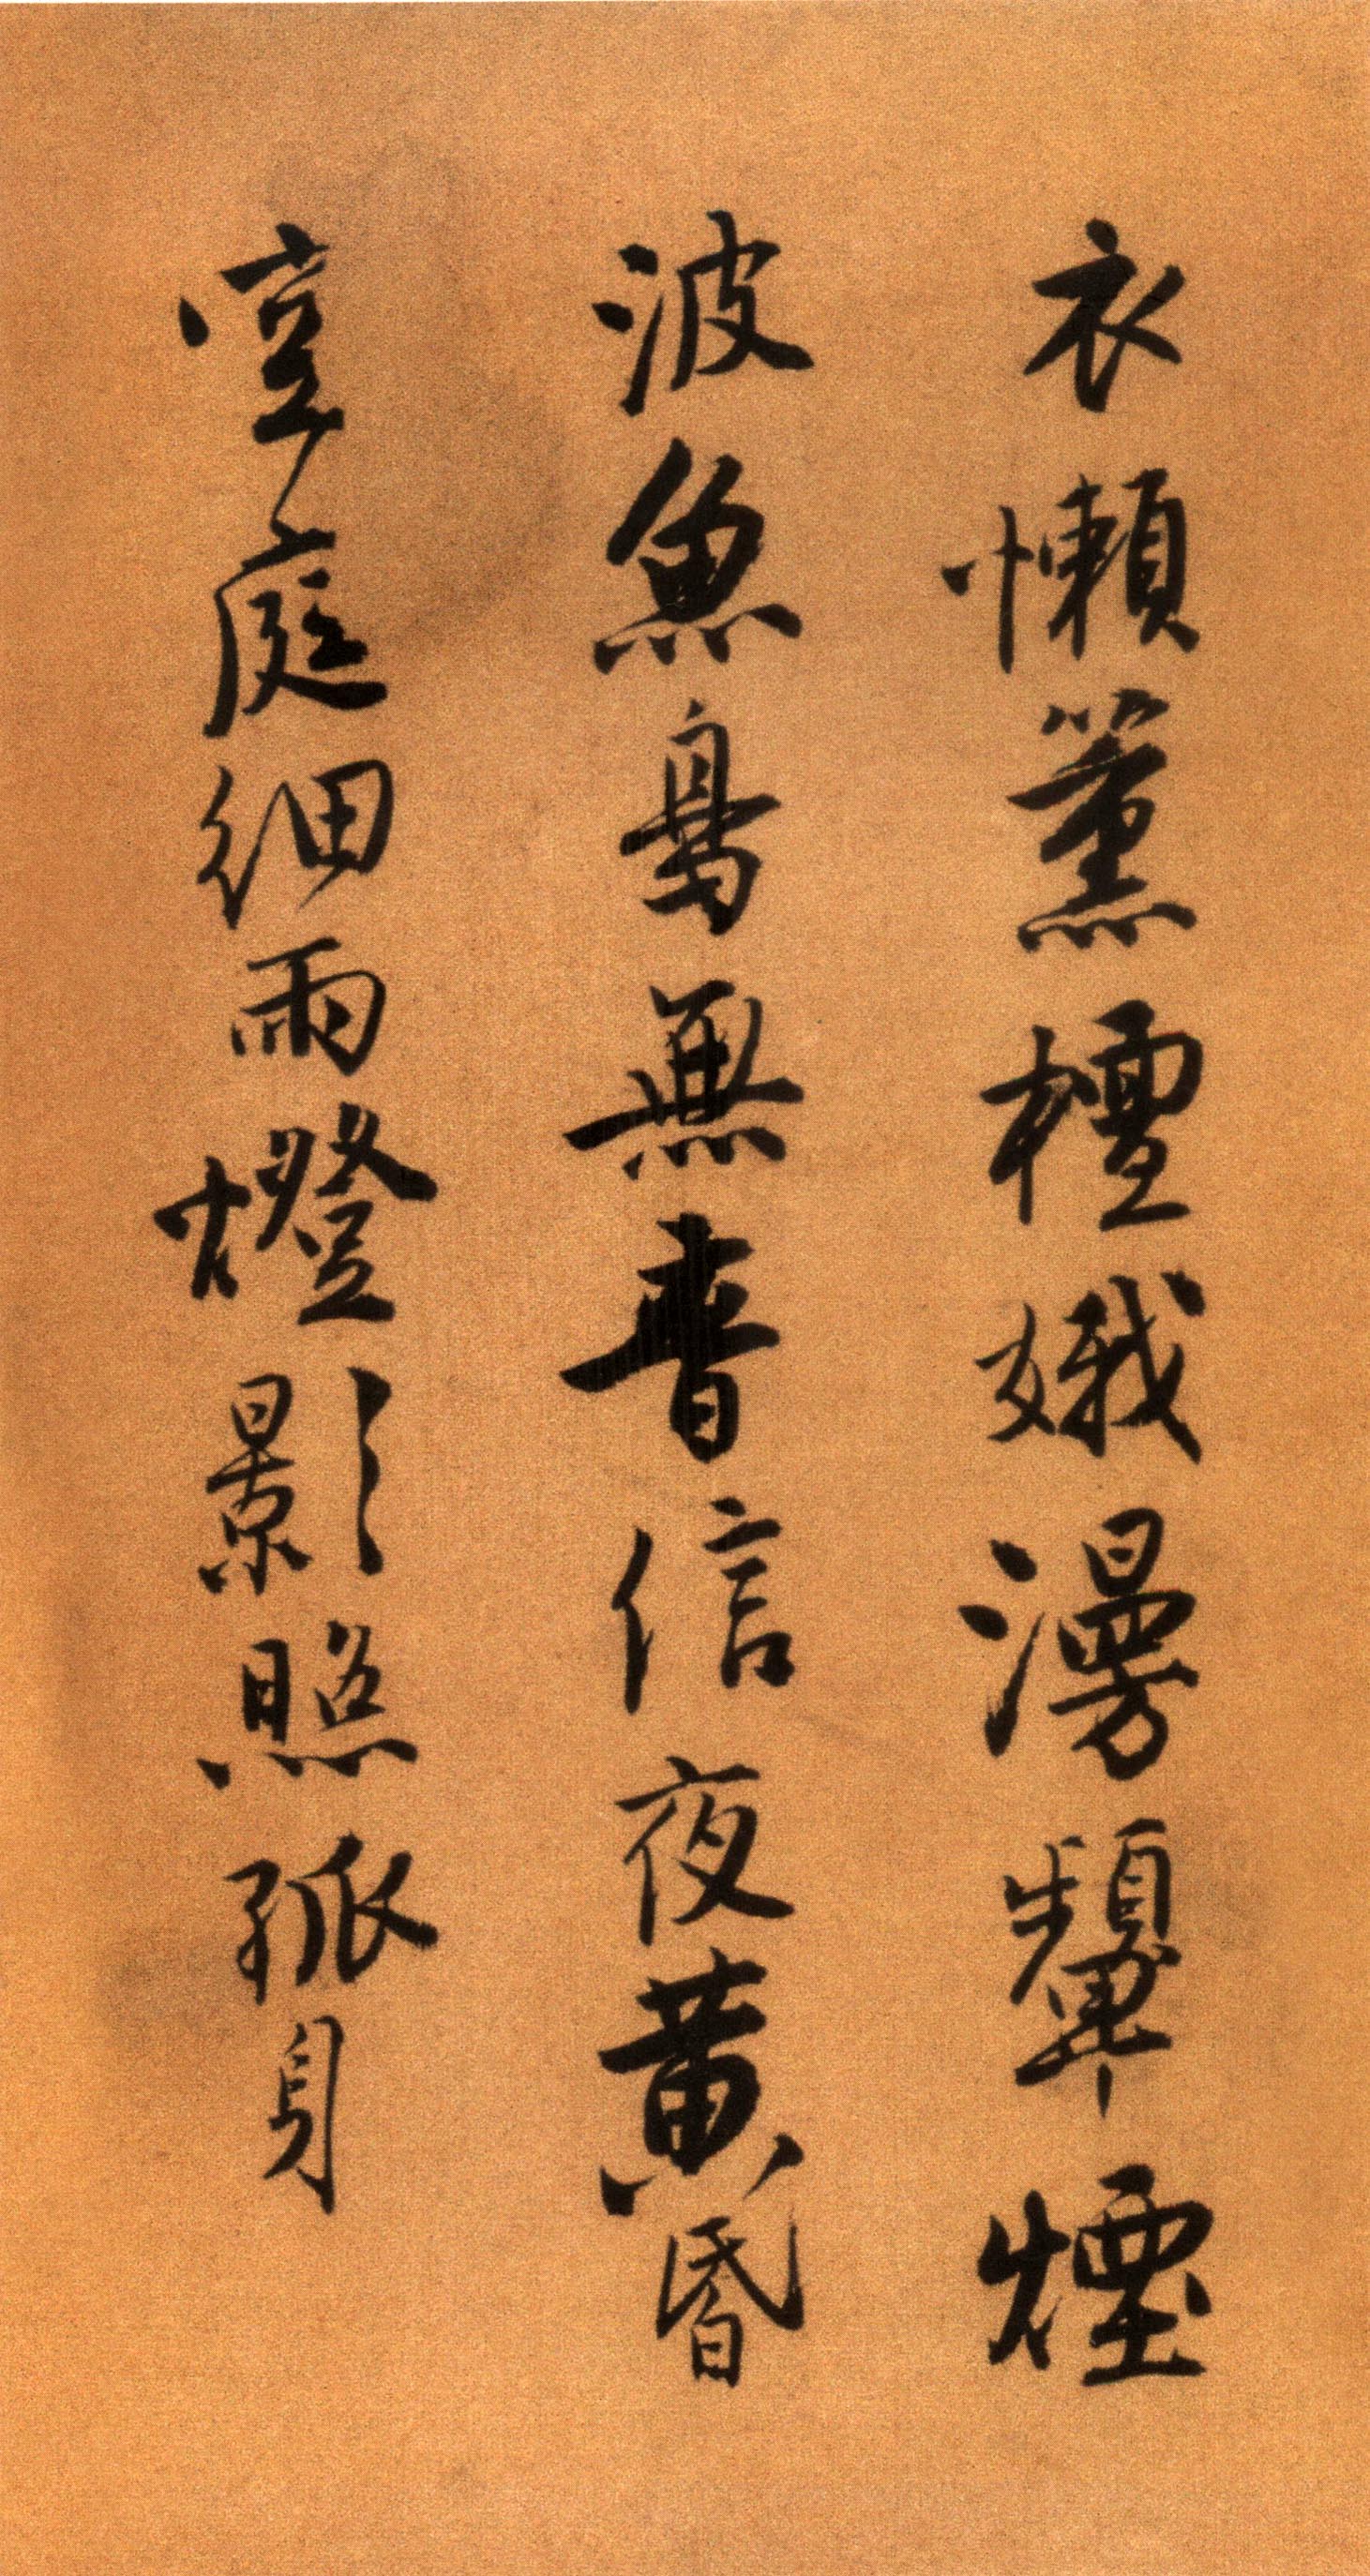 衣懶薰檀娥漫顰煙
波魚鳥無音信夜黃昏
空庭細雨燈影照孤身